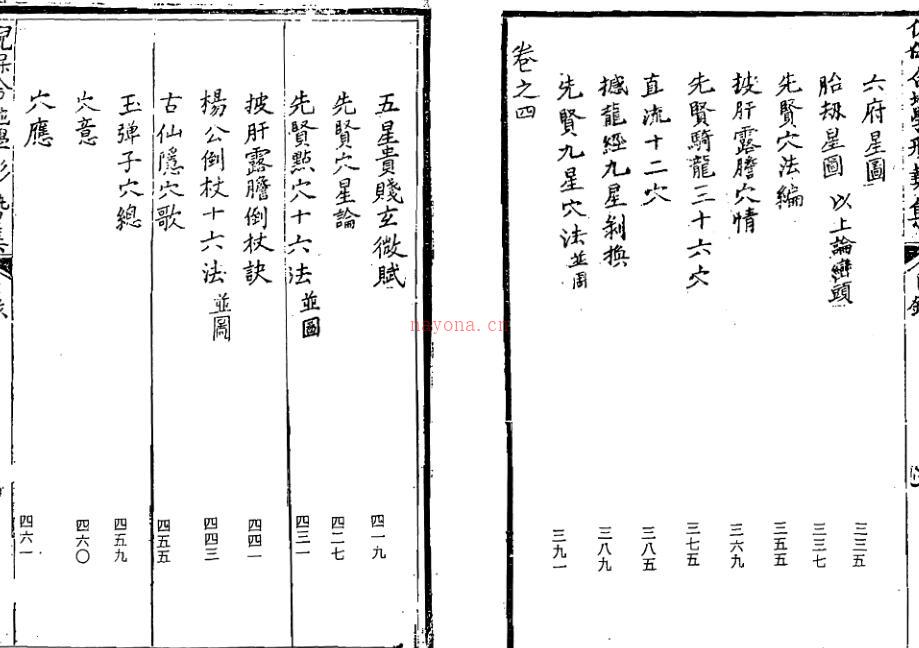 六府星圖 三三五
胎刼星圖 以上論巒頭 三三七
先賢穴法編 三五五
披肝露膽穴情 三六九
先賢騎龍三十六穴 三七五
直流十二穴 三八五
撼龍經九星剝換 三八九
先賢九星穴法 並圖 三九一
卷之四
五星貴賤玄微賦 四一九
先賢穴星論 四二七
先賢點穴十六法 並圖 四三一
披肝露膽倒杖訣 四四一
楊公倒杖十六法 並圖 四四三
古仙隱穴歌 四五五
玉彈子穴總 四五九
穴意 四六〇
穴應 四六一
nayona.cn